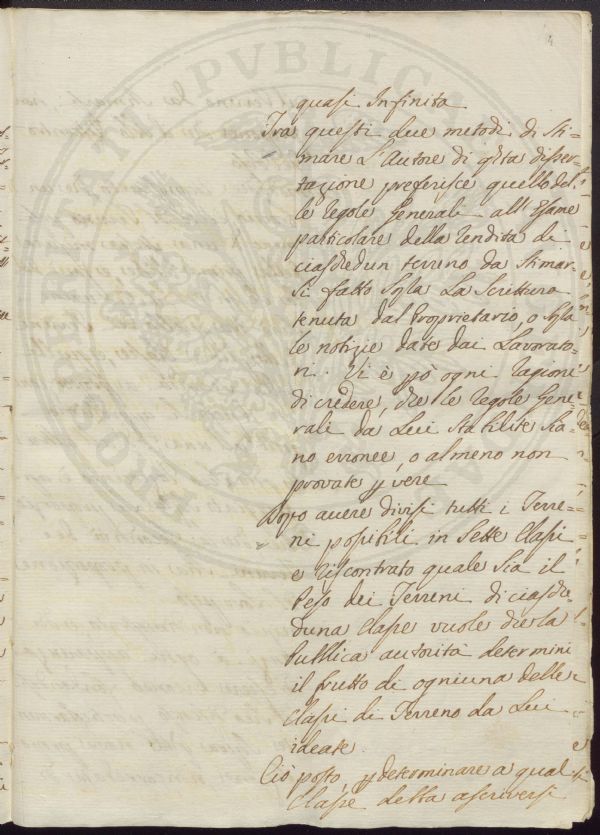 4
quasi Infinita
Tra questi due metodi di Sti-
mare L'Autore di qsta disser-
tazione preferisce quello del-
le regole Generali all'Esame
particolare della rendita di
ciaschedun terreno da Stimar-
Si fatto Sopra La Scrittura
tenuta dal Proprietario, o Sopra
le notizie date dai Lavorato-
ri. Vi è pò ogni ragione
di credere, che le regole Gene-
rali da Lui Stabilite Sia-
no erronee, o almeno non
provate p vere
Dopo avere divisi tutti i Terre-
ni possibili in Sette Classi
e riscontrato quale Sia il
Peso dei Terreni di ciasche-
duna Classe vuole che la
Pubblica autorità determini
il frutto di ogniuna delle
Classi di Terreno da Lui
ideate.
Ciò posto p determinare a qual
Classe debba ascriversi
PROSPERITATI PVBLICAE